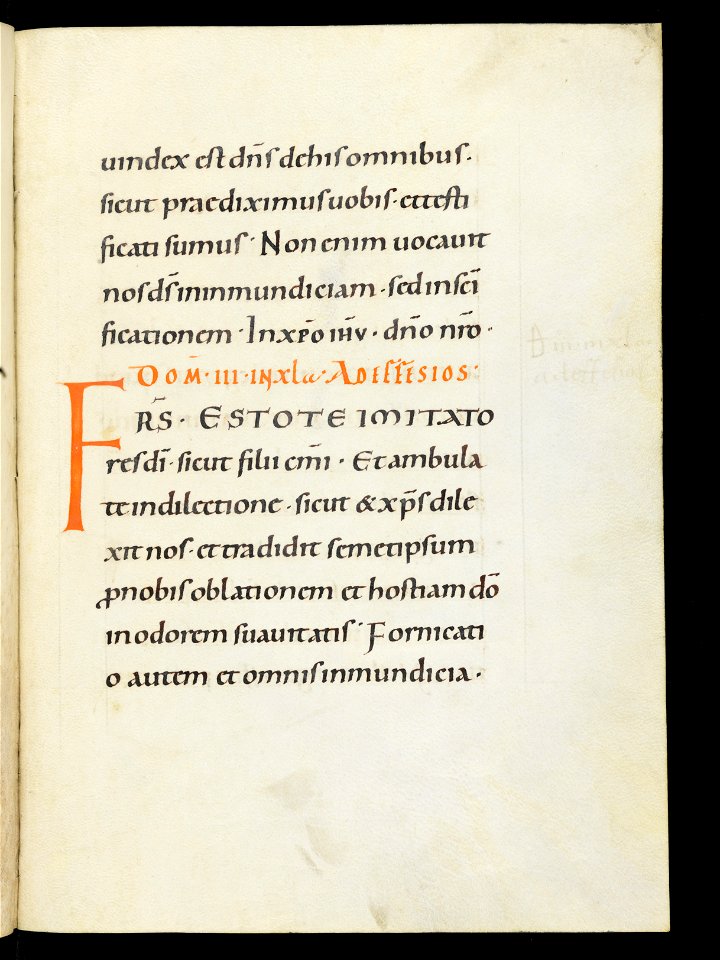 uindex est dn̄s dehis omnibus.
sicut praediximus uobis · et testi
ficati sumus · Non enim uocauit
nos ds̄ ininmundiciam · sed in sc̄i
ficationem · In xp̄o ih̄u · dn̄o nr̄o ·
Dom̄ · III · IN xl̄a · Ad effesios :
FRS̄ · ESTOTE IMITATO
res dī · sicut filii cm̄i · Et ambula
te in dilectione · sicut & xp̄s dile
xit nos · et tradidit semetipsum
ꝓ nobis oblationem et hostiam dō
in odorem suauitatis · Fornicati
o autem et omnis inmundicia ·